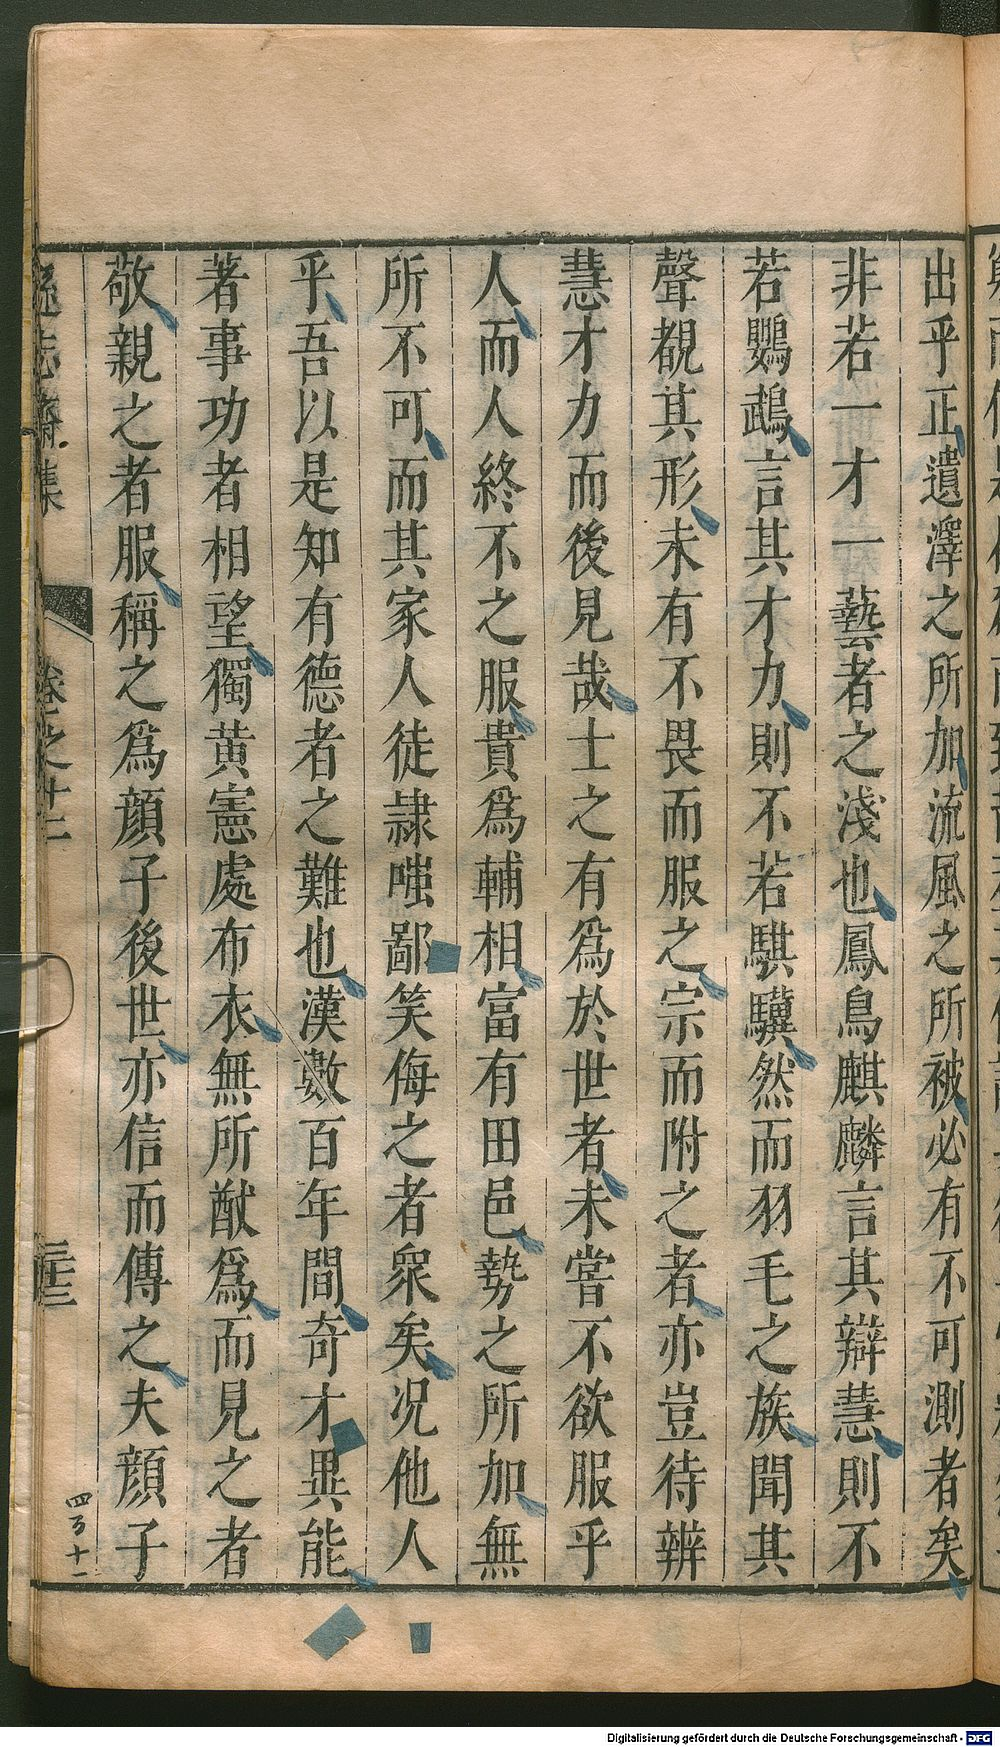 出乎正遺澤之所加流風之所被必有不可測者矣
非若一才一藝者之淺也鳳鳥麒麟言其辯慧則不
若鸚鵡言其才力則不若騏驥然而羽毛之族聞其
聲覩其形未有不畏而服之宗而附之者亦豈待辨
慧才力而後見哉士之有爲於世者未嘗不欲服乎
人而人終不之服貴爲輔相富有田邑勢之所加無
所不可而其家人徒隷嗤鄙笑侮之者衆矣況他人
乎吾以是知有德者之難也漢數百年間奇才異能
著事功者相望獨黄憲處布衣無所猷爲而見之者
敬親之者服稱之爲顔子後世亦信而傳之夫顔子
遜志齋集
卷之十二
四百十一
Digitalisierung gefördert durch die Deutsche Forschungsgemeinschaft - DFG